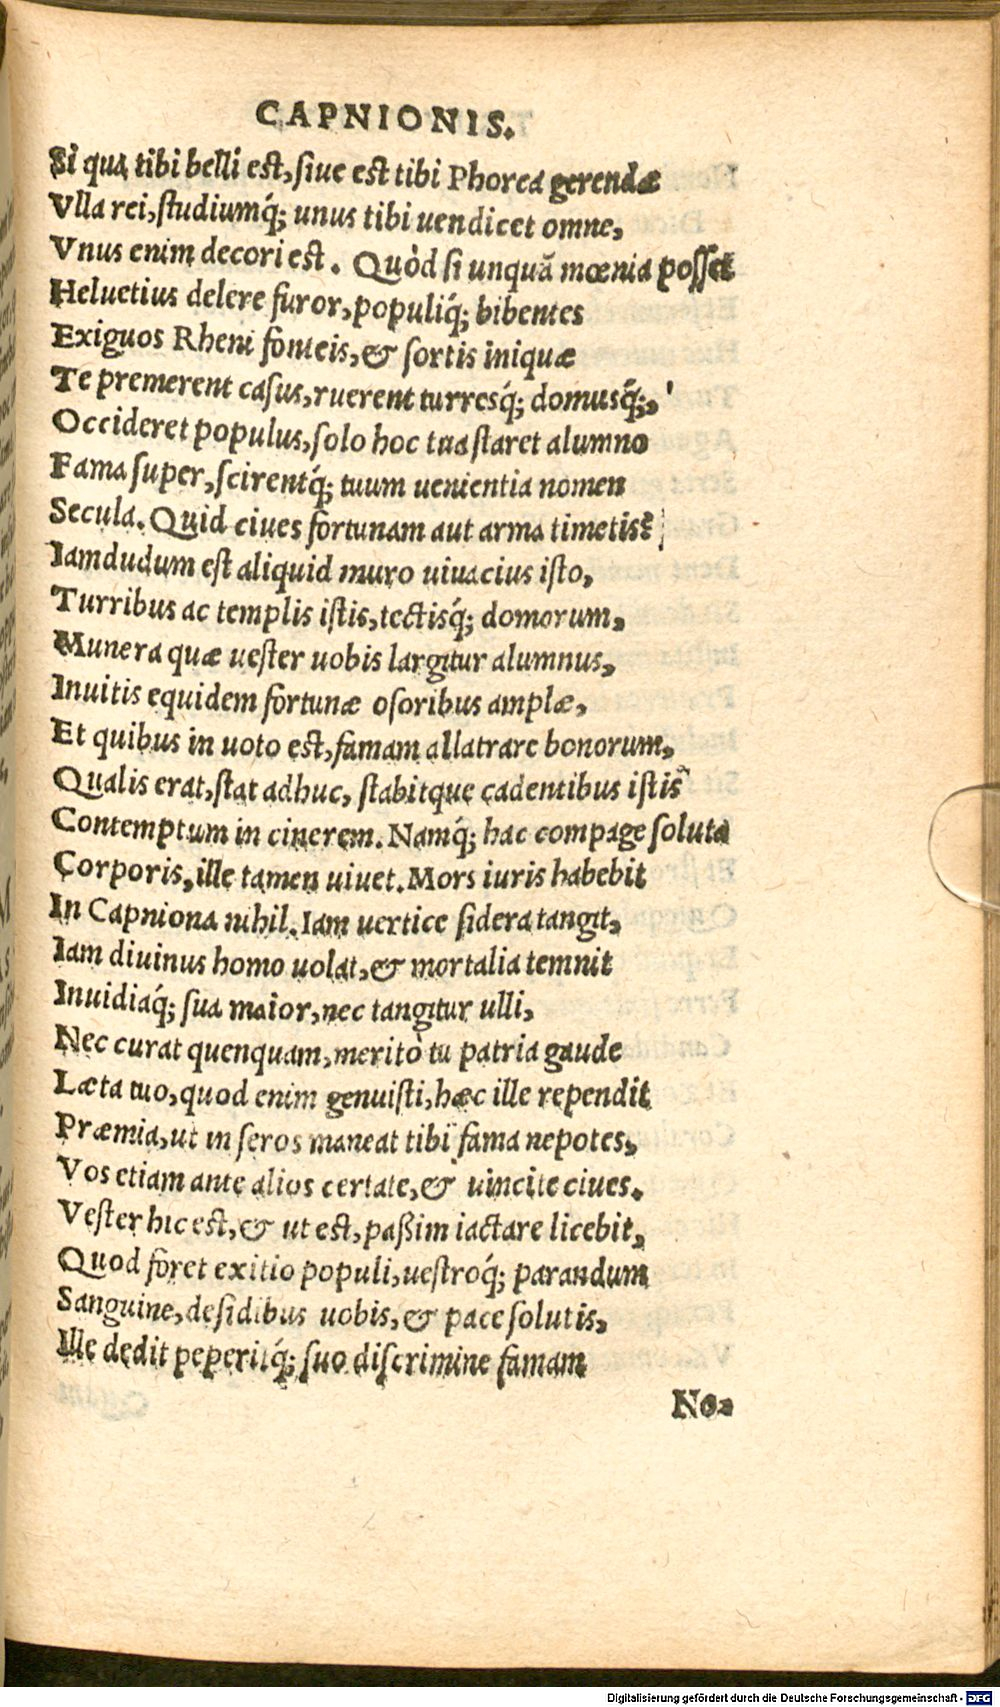 CAPNIONIS.
Si qua tibi belli est, siue est tibi Phorcea gerendæ
Vlla rei, studiumq́; unus tibi uendicet omne,
Vnus enim decori est. Quòd si unquã mœnia posset
Heluetius delere furor, populiq́; bibentes
Exiguos Rheni fonteis, & sortis iniquæ
Te premerent casus, ruerent turresq́; domusq́;,
Occideret populus, solo hoc tua staret alumno
Fama super, scirentq́; tuum uenientia nomen
Secula. Quid ciues fortunam aut arma timetis?
Iamdudum est aliquid muro uiuacius isto,
Turribus ac templis istis, tectisq́; domorum,
Munera quæ uester uobis largitur alumnus,
Inuitis equidem fortunæ osoribus amplæ,
Et quibus in uoto est, famam allatrare bonorum,
Qualis erat, stat adhuc, stabitque cadentibus istis
Contemptum in cinerem. Namq́; hac compage soluta
Corporis, ille tamen uiuet. Mors iuris habebit
In Capniona nihil. Iam uertice sidera tangit,
Iam diuinus homo uolat, & mortalia temnit
Inuidiaq́; sua maior, nec tangitur ulli,
Nec curat quenquam, meritò tu patria gaude
Læta tuo, quod enim genuisti, hæc ille rependit
Præmia, ut in seros maneat tibi fama nepotes,
Vos etiam ante alios certate, & uincite ciues.
Vester hic est, & ut est, paßim iactare licebit,
Quod foret exitio populi, uestroq́; parandum
Sanguine, desidibus uobis, & pace solutis,
Ille dedit peperitq́; suo discrimine famam
No-
Digitalisierung gefördert durch die Deutsche Forschungsgemeinschaft - DFG